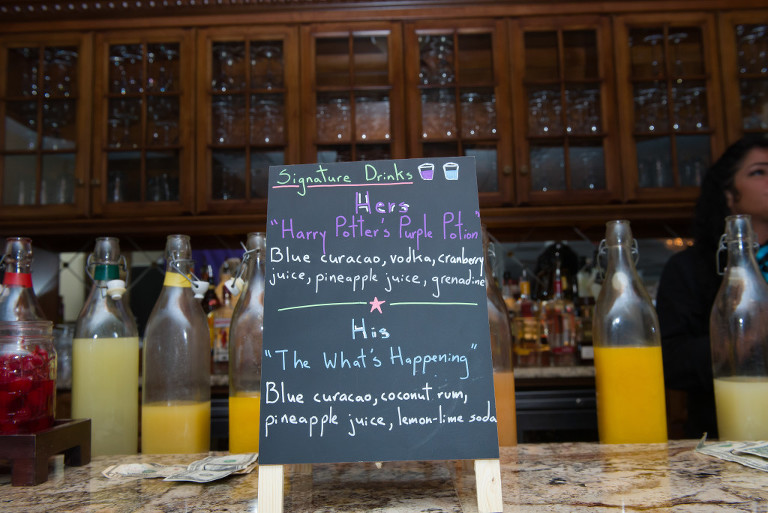 Signature Drinks
Hers
"Harry Potter's Purple Potion"
Blue curacao, vodka, cranberry
juice, pineapple juice, grenadine
His
"The What's Happening"
Blue curacao, coconut rum,
pineapple juice, lemon-lime soda